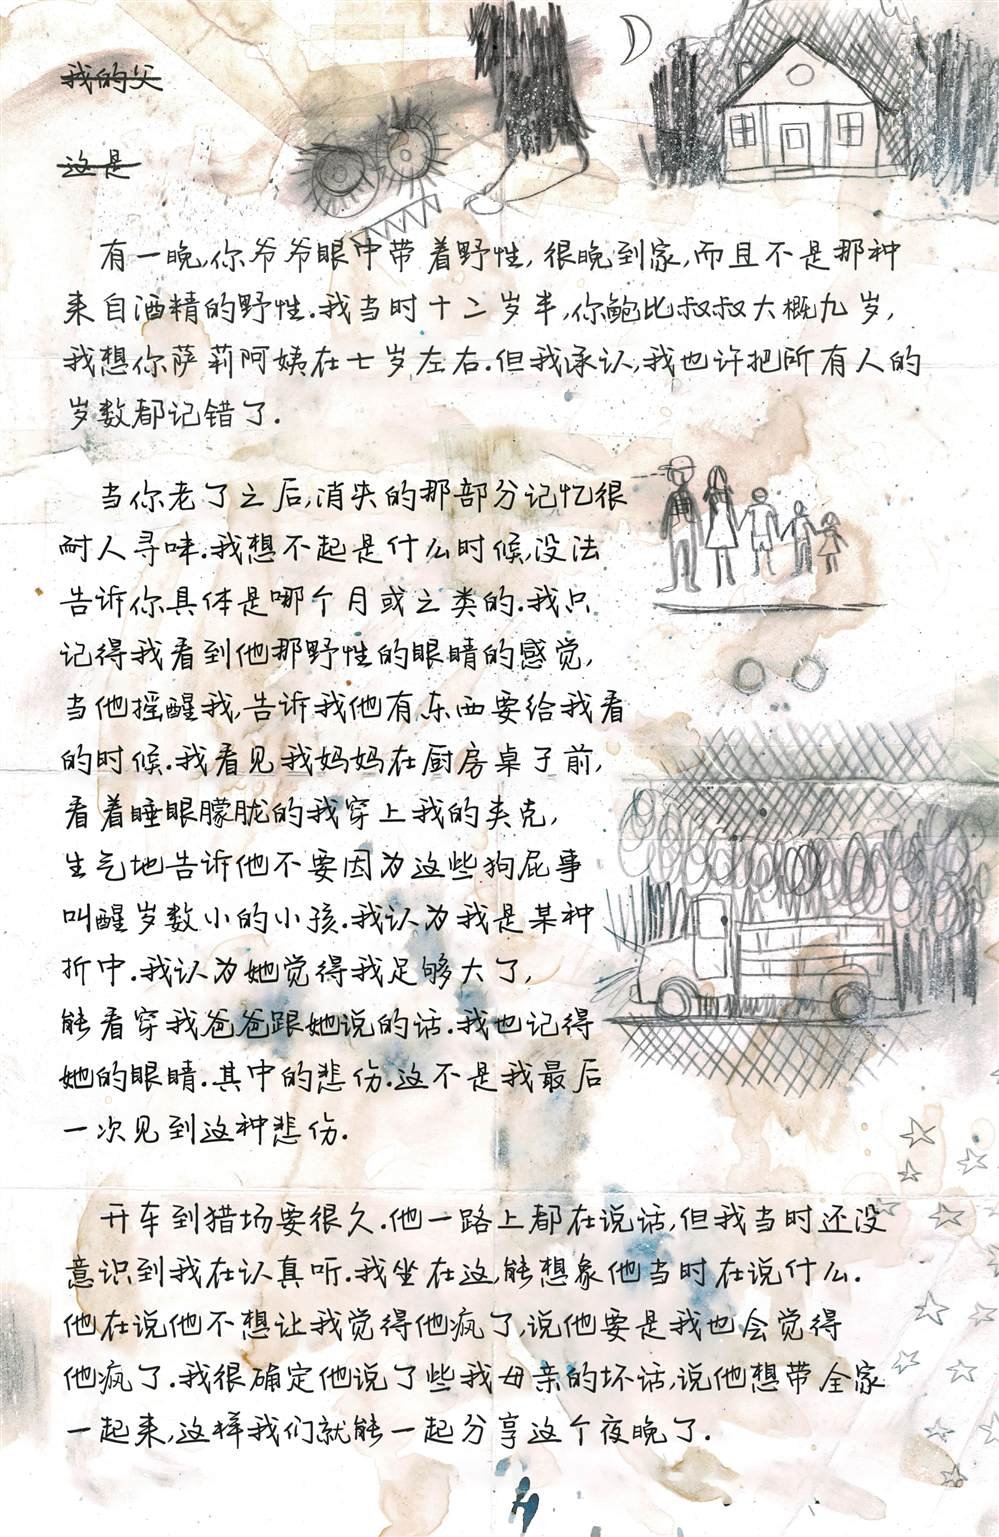 我的父
这是
有一晚,你爷爷眼中带着野性,很晚到家,而且不是那种
来自酒精的野性.我当时十二岁半,你鲍比叔叔大概九岁,
我想你萨莉阿姨在七岁左右.但我承认,我也许把所有人的
岁数都记错了.
当你老了之后,消失的那部分记忆很
耐人寻味.我想不起是什么时候,没法
告诉你具体是哪个月或之类的.我只
记得我看到他那野性的眼睛的感觉,
当他摇醒我,告诉我他有东西要给我看
的时候.我看见我妈妈在厨房桌子前,
看着睡眼朦胧的我穿上我的夹克,
生气地告诉他不要因为这些狗屁事
叫醒岁数小的小孩.我认为我是某种
折中.我认为她觉得我足够大了,
能看穿我爸爸跟她说的话.我也记得
她的眼睛.其中的悲伤.这不是我最后
一次见到这种悲伤.
开车到猎场要很久.他一路上都在说话,但我当时还没
意识到我在认真听.我坐在这,能想象他当时在说什么.
他在说他不想让我觉得他疯了,说他要是我也会觉得
他疯了.我很确定他说了些我母亲的坏话,说他想带全家
一起来,这样我们就能一起分享这个夜晚了.